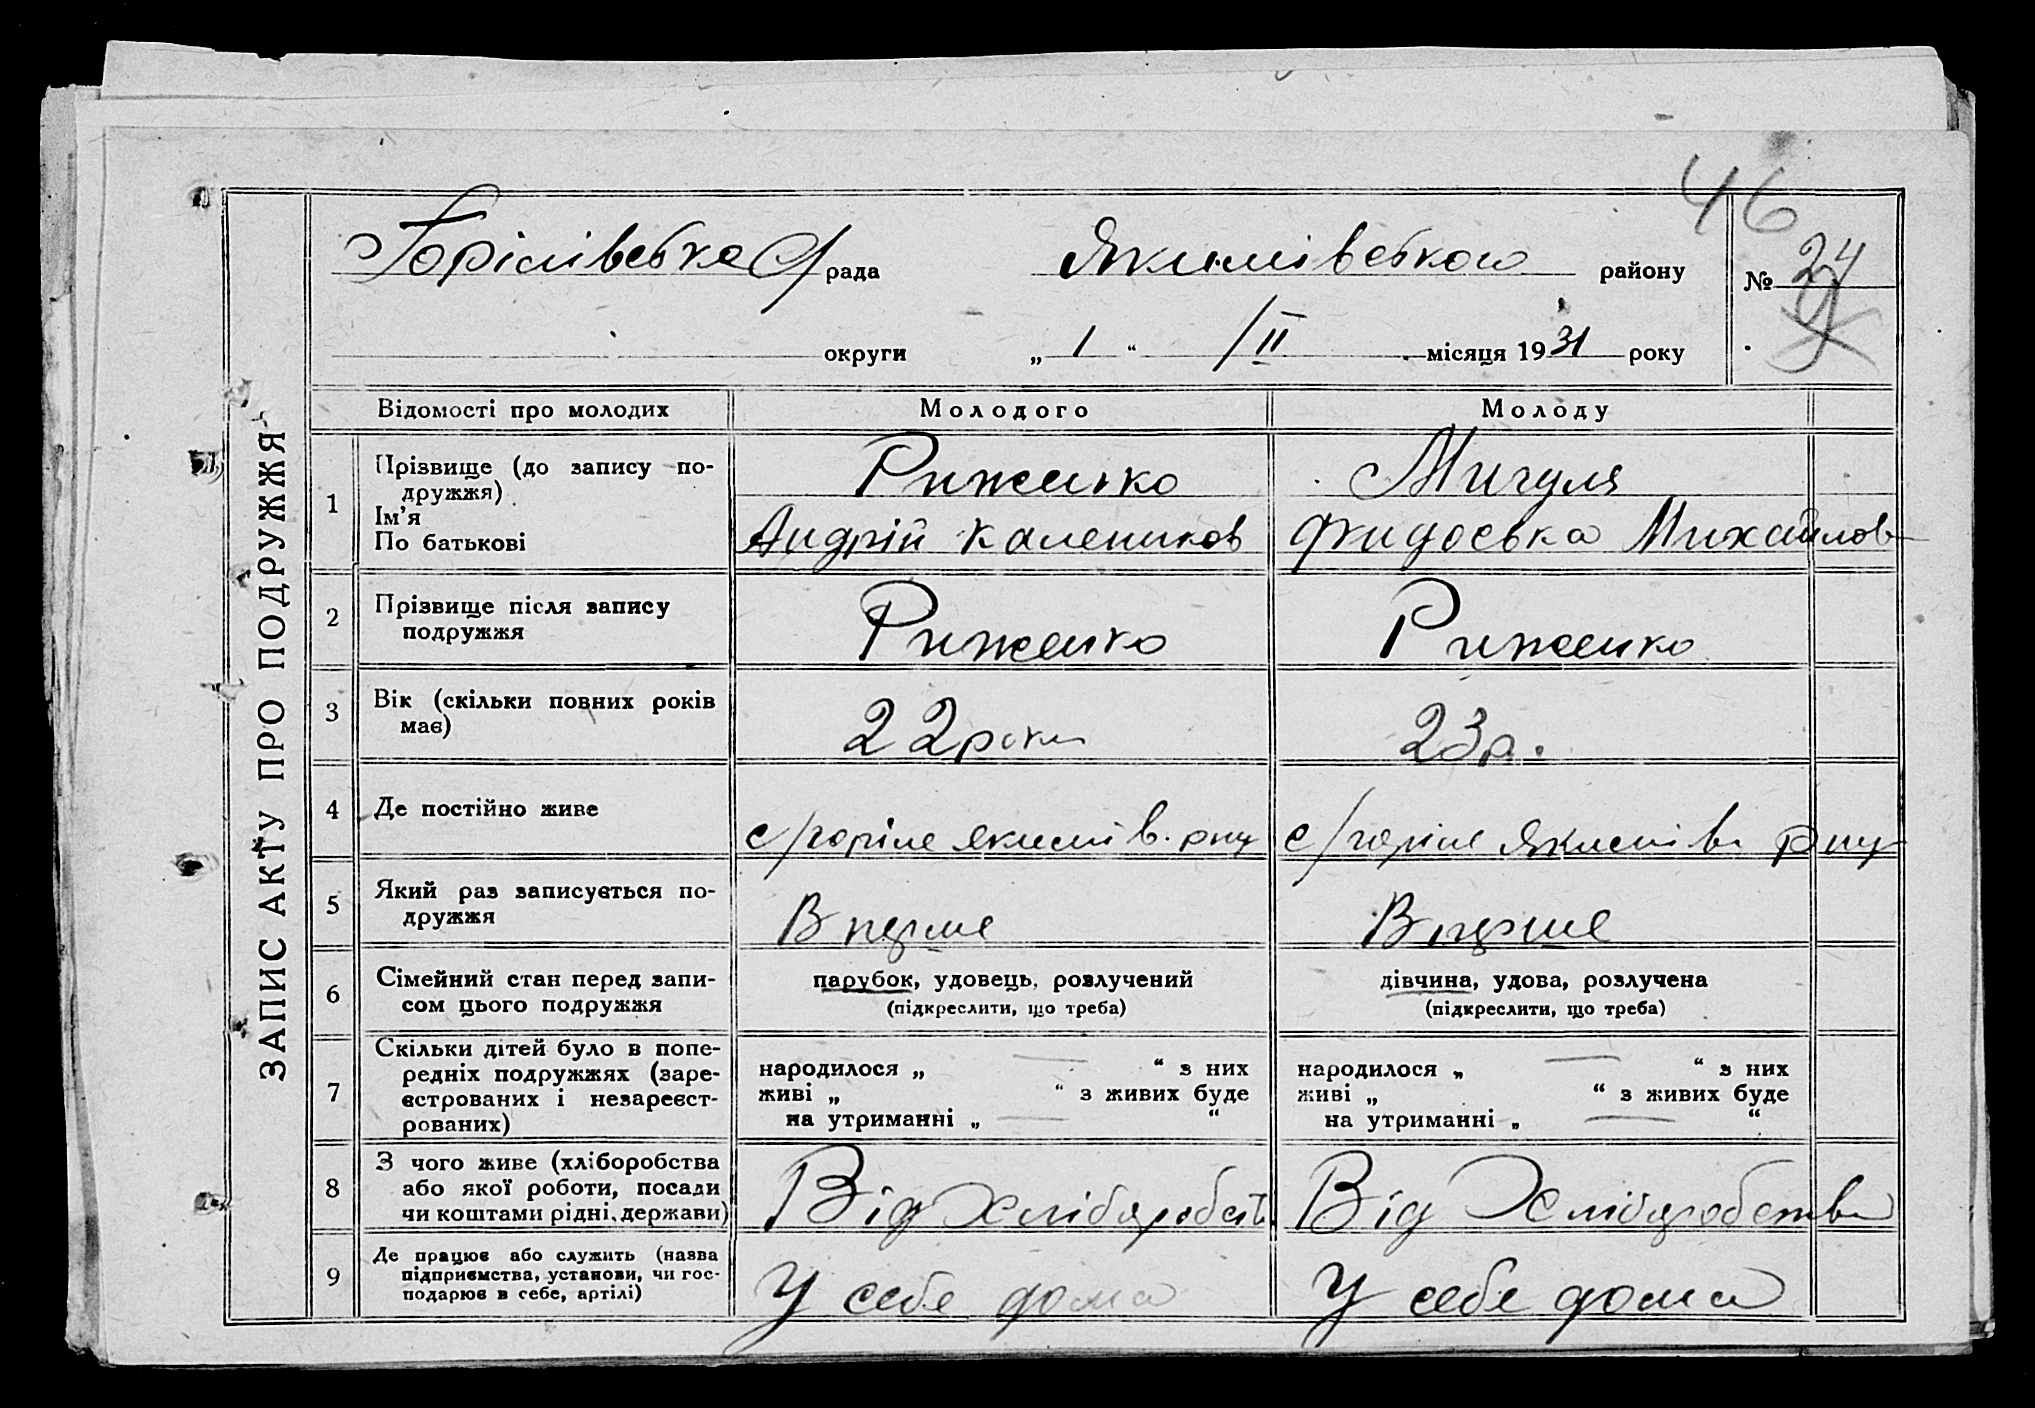 46
Горілівська С/рада Якимівського району № 24
округи „ 1 “ /II місяця 1931 року
ЗАПИС АКТУ ПРО ПОДРУЖЖЯ
Відомості про молодих Молодого Молоду
1 Прізвище (до запису подружжя) Риженко Мигуля
Ім'я
По батькові Андрій Калеников Фидоська Михайлов
2 Прізвище після запису подружжя Риженко Риженко
3 Вік (скільки повних років має) 22 роки 23 р.
4 Де постійно живе с/горіле Якимів. р-ну с/горіле Якимів р-ну
5 Який раз записується подружжя Вперше Вперше
6 Сімейний стан перед записом цього подружжя парубок, удовець, розлучений дівчина, удова, розлучена
(підкреслити, що треба) (підкреслити, що треба)
7 Скільки дітей було в попередніх подружжях (зареєстрованих і незареєстрованих)
народилося „ — “ з них народилося „ — “ з них
живі „ “ з живих буде живі „ “ з живих буде
на утриманні „ — “ на утриманні „ — “
8 З чого живе (хліборобства або якої роботи, посади чи коштами рідні, держави) Від Хліборобств Від Хліборобства
9 Де працює або служить (назва підприємства, установи, чи господарює в себе, артілі) У себе дома У себе дома